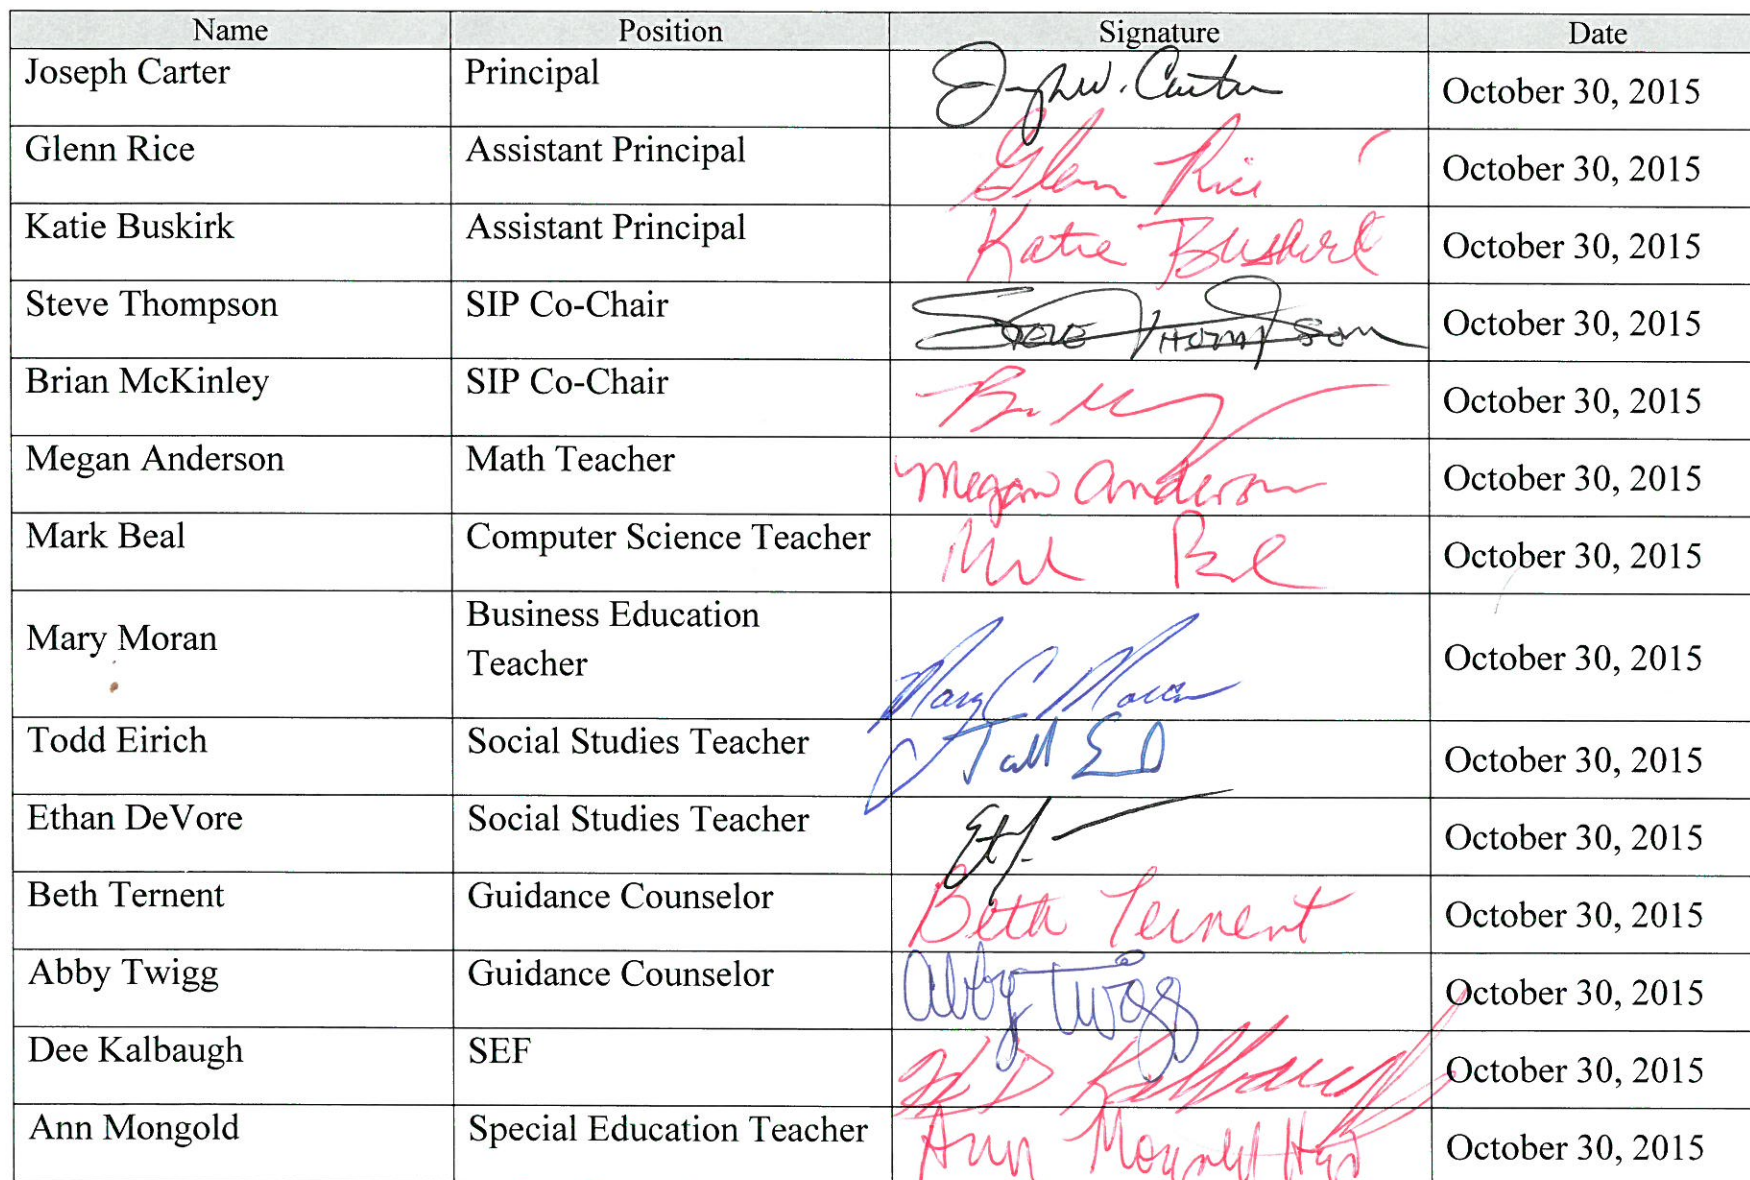 Name Position Signature Date
Joseph Carter Principal Joseph W. Carter October 30, 2015
Glenn Rice Assistant Principal Glenn Rice October 30, 2015
Katie Buskirk Assistant Principal Katie Buskirk October 30, 2015
Steve Thompson SIP Co-Chair Steve Thompson October 30, 2015
Brian McKinley SIP Co-Chair October 30, 2015
Megan Anderson Math Teacher Megan Anderson October 30, 2015
Mark Beal Computer Science Teacher Mark Beal October 30, 2015
Business Education
Mary Moran Mary C Moran October 30, 2015
Teacher
Todd Eirich Social Studies Teacher October 30, 2015
Ethan DeVore Social Studies Teacher October 30, 2015
Beth Ternent Guidance Counselor Beth Ternent October 30, 2015
Abby Twigg Guidance Counselor Abby Twigg October 30, 2015
Dee Kalbaugh SEF Kalbaugh October 30, 2015
Ann Mongold Special Education Teacher Ann Mongold October 30, 2015